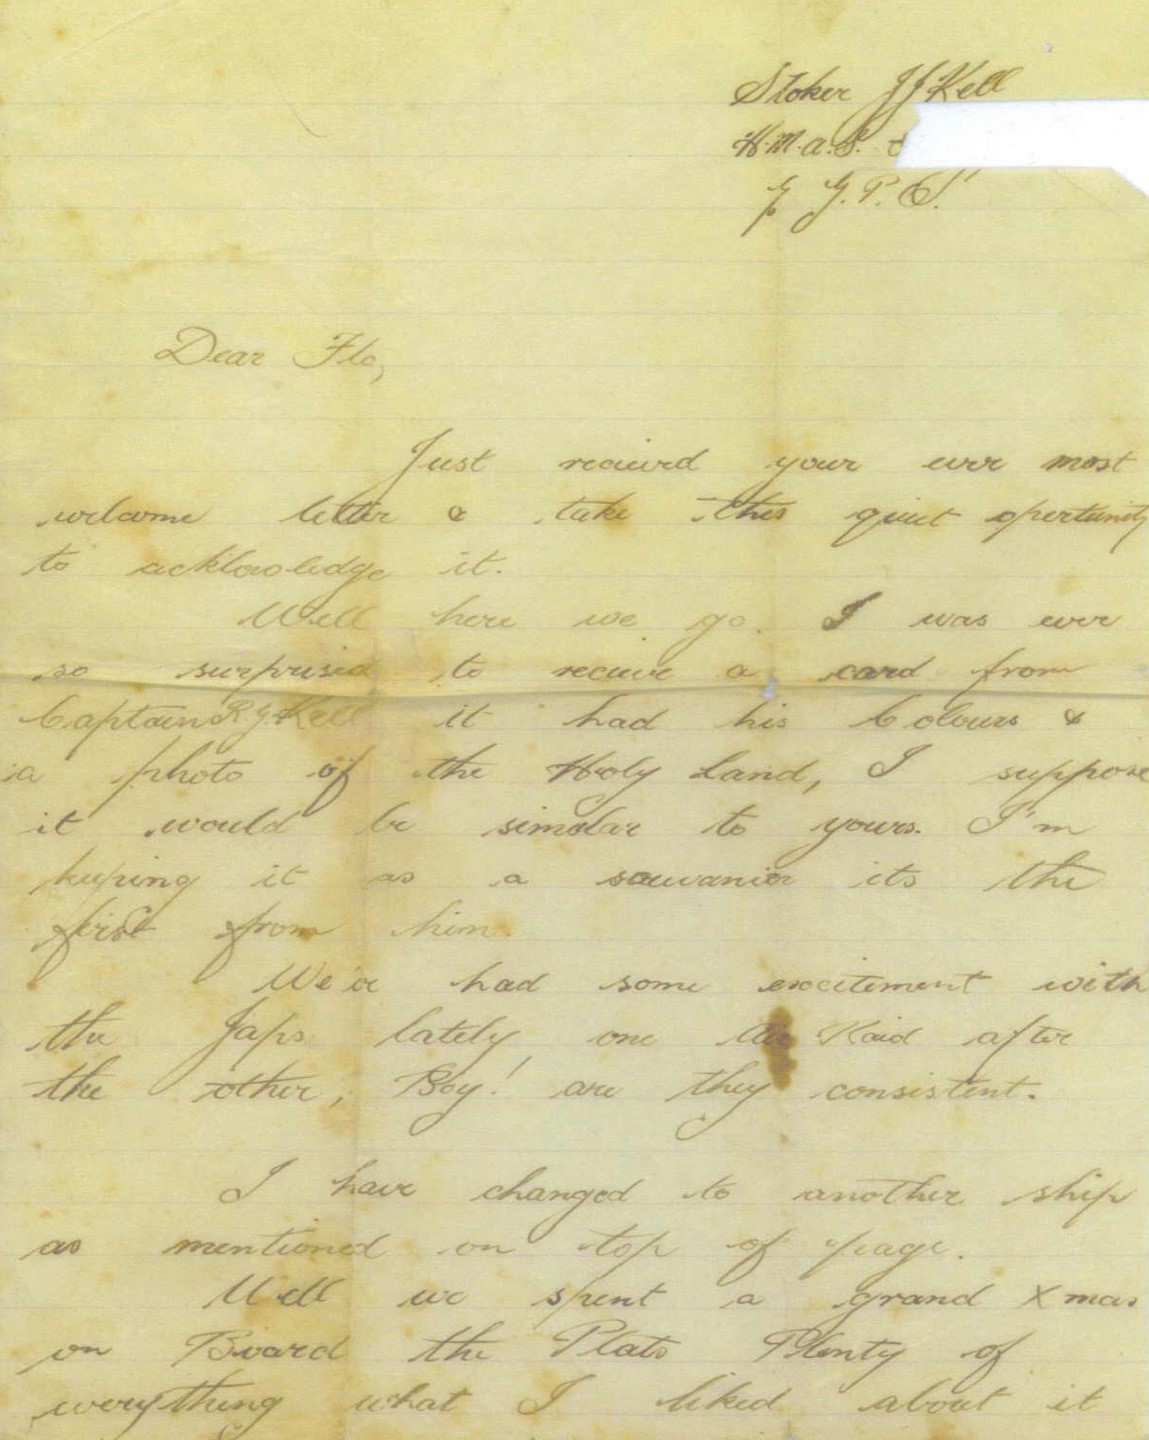 Stoker J J Kell
H.M.A.S.
G.P.O.
Dear Flo,
Just recieved your ever most
welcome letter & take this quiet opertunity
to acklowledge it.
Well here we go. I was ever
so surprised to recieve a card from
Captain R J Kell it had his Colours &
a photo of the Holy Land, I suppose
it would be similar to yours. I'm
keeping it as a souvanier its the
first from him.
We've had some excitement with
the Japs lately one Air Raid after
the other, Boy! are they consistent.
I have changed to another ship
as mentioned on top of page.
Well we spent a grand Xmas
on Board the Plats Plenty of
everything what I liked about it